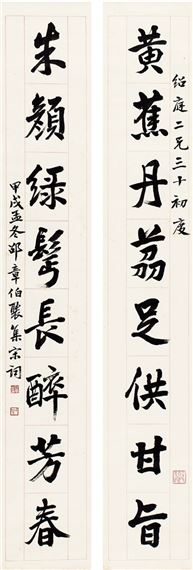 紹庭二兄三十初度
黃蕉丹荔足供甘旨
朱顏綠鬢長醉芳春
甲戌孟冬邵章伯褧集宋詞